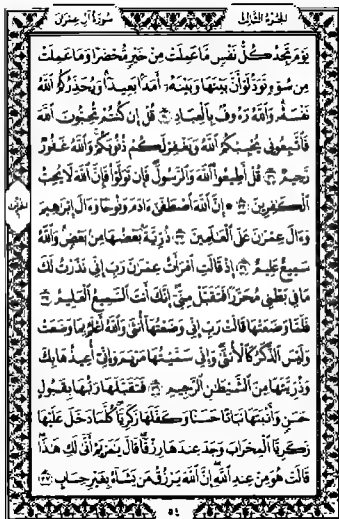 الجزء الثالث سورة آل عمران
يَوْمَ تَجِدُ كُلُّ نَفْسٍ مَّا عَمِلَتْ مِنْ خَيْرٍ مُّحْضَرًا وَمَا عَمِلَتْ
مِن سُوٓءٍ تَوَدُّ لَوْ أَنَّ بَيْنَهَا وَبَيْنَهُۥٓ أَمَدًۢا بَعِيدًا وَيُحَذِّرُكُمُ ٱللَّهُ
نَفْسَهُۥ وَٱللَّهُ رَءُوفٌۢ بِٱلْعِبَادِ ۝٣٠ قُلْ إِن كُنتُمْ تُحِبُّونَ ٱللَّهَ
فَٱتَّبِعُونِى يُحْبِبْكُمُ ٱللَّهُ وَيَغْفِرْ لَكُمْ ذُنُوبَكُمْ وَٱللَّهُ غَفُورٌ
رَّحِيمٌ ۝٣١ قُلْ أَطِيعُوا۟ ٱللَّهَ وَٱلرَّسُولَ فَإِن تَوَلَّوْا۟ فَإِنَّ ٱللَّهَ لَا يُحِبُّ
ٱلْكَٰفِرِينَ ۝٣٢ إِنَّ ٱللَّهَ ٱصْطَفَىٰٓ ءَادَمَ وَنُوحًا وَءَالَ إِبْرَٰهِيمَ
وَءَالَ عِمْرَٰنَ عَلَى ٱلْعَٰلَمِينَ ۝٣٣ ذُرِّيَّةًۢ بَعْضُهَا مِنۢ بَعْضٍ وَٱللَّهُ
سَمِيعٌ عَلِيمٌ ۝٣٤ إِذْ قَالَتِ ٱمْرَأَتُ عِمْرَٰنَ رَبِّ إِنِّى نَذَرْتُ لَكَ
مَا فِى بَطْنِى مُحَرَّرًا فَتَقَبَّلْ مِنِّىٓ إِنَّكَ أَنتَ ٱلسَّمِيعُ ٱلْعَلِيمُ ۝٣٥
فَلَمَّا وَضَعَتْهَا قَالَتْ رَبِّ إِنِّى وَضَعْتُهَآ أُنثَىٰ وَٱللَّهُ أَعْلَمُ بِمَا وَضَعَتْ
وَلَيْسَ ٱلذَّكَرُ كَٱلْأُنثَىٰ وَإِنِّى سَمَّيْتُهَا مَرْيَمَ وَإِنِّىٓ أُعِيذُهَا بِكَ
وَذُرِّيَّتَهَا مِنَ ٱلشَّيْطَٰنِ ٱلرَّجِيمِ ۝٣٦ فَتَقَبَّلَهَا رَبُّهَا بِقَبُولٍ
حَسَنٍ وَأَنۢبَتَهَا نَبَاتًا حَسَنًا وَكَفَّلَهَا زَكَرِيَّا كُلَّمَا دَخَلَ عَلَيْهَا
زَكَرِيَّا ٱلْمِحْرَابَ وَجَدَ عِندَهَا رِزْقًا قَالَ يَٰمَرْيَمُ أَنَّىٰ لَكِ هَٰذَا
قَالَتْ هُوَ مِنْ عِندِ ٱللَّهِ إِنَّ ٱللَّهَ يَرْزُقُ مَن يَشَآءُ بِغَيْرِ حِسَابٍ ۝٣٧
٥٤